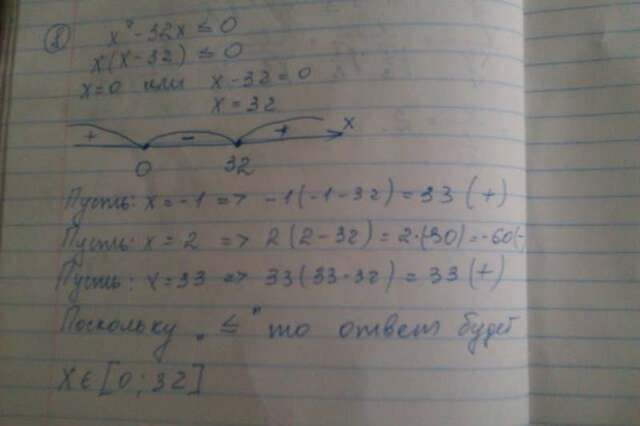 ② x² - 32x ≤ 0
x(x-32) ≤ 0
x=0 или x-32=0
x=32
+ - + x
0 32
Пусть: x=-1 => -1(-1-32)=33(+)
Пусть: x=2 => 2(2-32)=2·(30)=-60(-
Пусть: x=33 => 33(33-32)=33(+)
Поскольку „≤" то ответ будет
X∈[0;32]